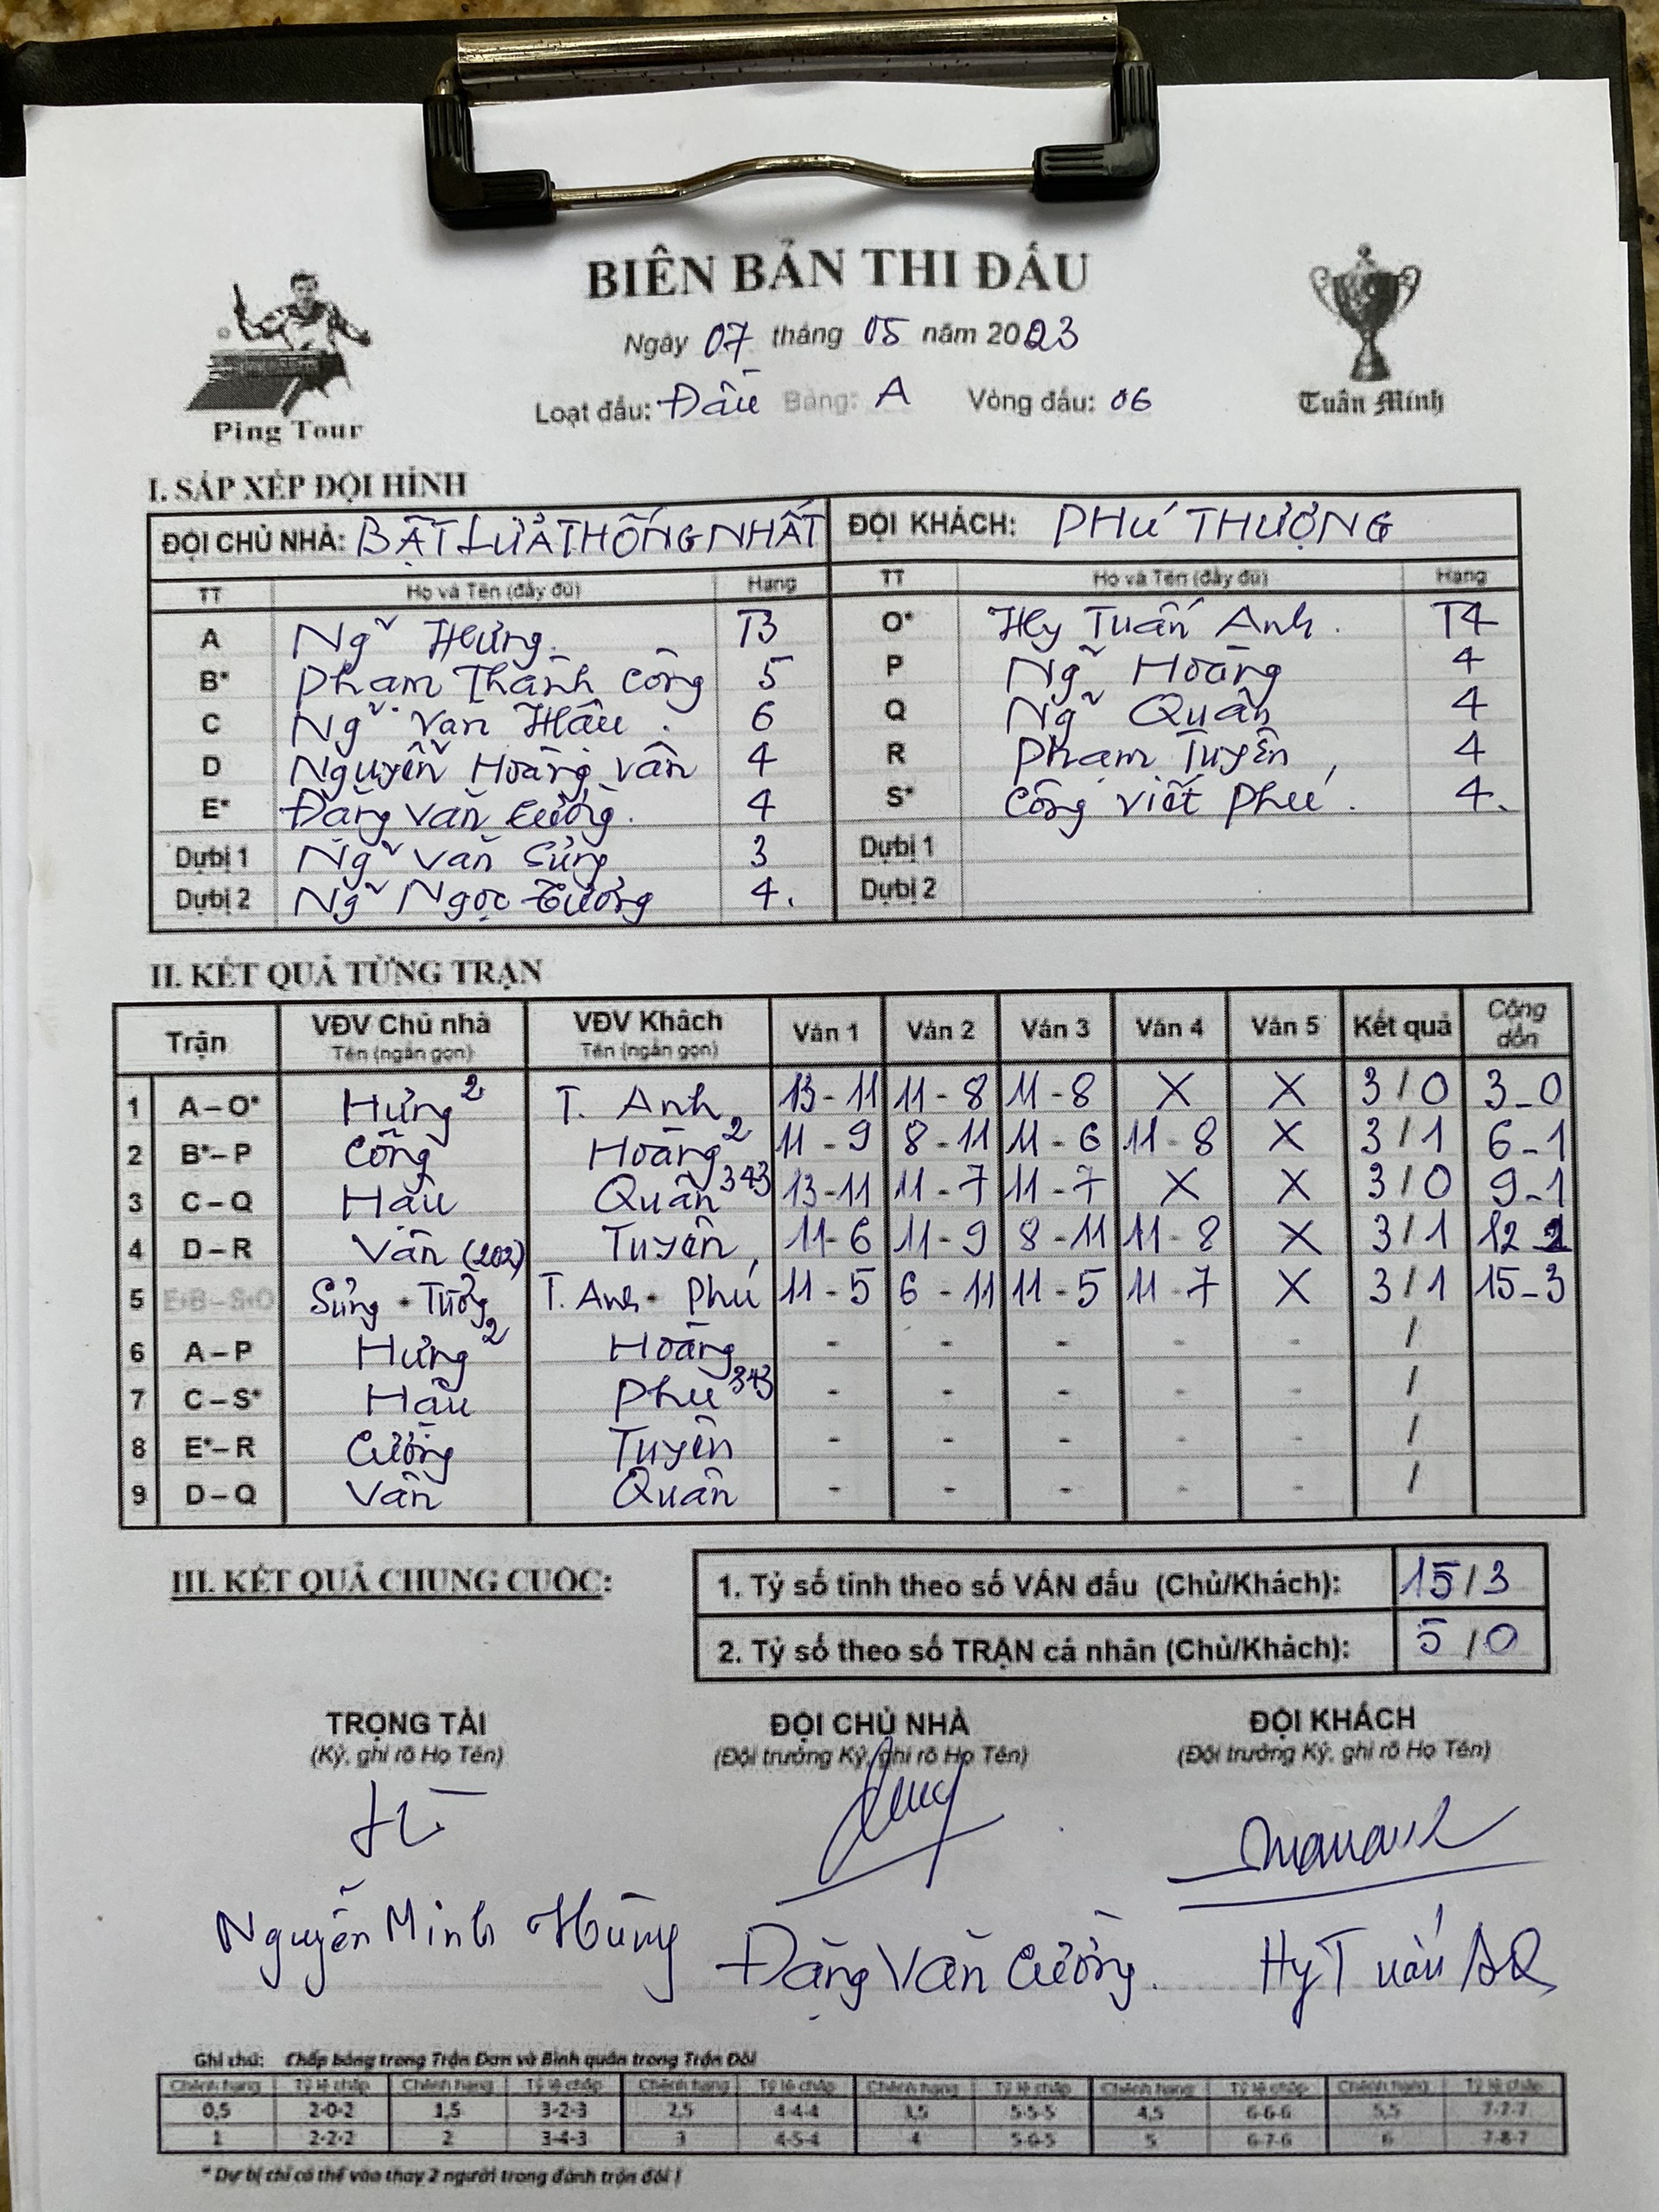 BIÊN BẢN THI ĐẤU
Ngày 07 tháng 05 năm 2023
Loạt đấu: Đấu Bảng: A Vòng đấu: 06
Ping Tour
Tuấn Minh
I. SẮP XẾP ĐỘI HÌNH
ĐỘI CHỦ NHÀ: BẬT LỬA THỐNG NHẤT ĐỘI KHÁCH: PHÚ THƯỢNG
TT Họ và Tên (đầy đủ) Hạng TT Họ và Tên (đầy đủ) Hạng
A Ngỹ Hưng. T3 O* Hy Tuấn Anh. T4
B* Phạm Thành Công 5 P Ngỹ Hoàng 4
C Ngỹ Văn Hậu. 6 Q Ngỹ Quân 4
D Nguyễn Hoàng Vân 4 R Phạm Tuyên, 4
E* Đặng Văn Cường. 4 S* Công Viết Phú. 4.
Dự bị 1 Ngỹ Văn Sửng 3 Dự bị 1
Dự bị 2 Ngỹ Ngọc Tưởng 4. Dự bị 2
II. KẾT QUẢ TỪNG TRẬN
Trận VĐV Chủ nhà Tên (ngắn gọn) VĐV Khách Tên (ngắn gọn) Ván 1 Ván 2 Ván 3 Ván 4 Ván 5 Kết quả Cộng dồn
1 A – O* Hưng 2 T. Anh 13 - 11 11 - 8 11 - 8 X X 3 / 0 3 - 0
2 B* – P Công Hoàng 2 11 - 9 8 - 11 11 - 6 11 - 8 X 3 / 1 6 - 1
3 C – Q Hậu Quân 343 13 - 11 11 - 7 11 - 7 X X 3 / 0 9 - 1
4 D – R Vân (202) Tuyên, 11 - 6 11 - 9 8 - 11 11 - 8 X 3 / 1 12 2
5 E+B – S+O Sửng + Tưởng T. Anh + Phú 11 - 5 6 - 11 11 - 5 11 - 7 X 3 / 1 15 - 3
6 A – P Hưng 2 Hoàng - - - - - /
7 C – S* Hậu Phú 343 - - - - - /
8 E* – R Cường Tuyên - - - - - /
9 D – Q Vân Quân - - - - - /
III. KẾT QUẢ CHUNG CUỘC:
1. Tỷ số tính theo số VÁN đấu (Chủ/Khách): 15 / 3
2. Tỷ số theo số TRẬN cá nhân (Chủ/Khách): 5 / 0
TRỌNG TÀI ĐỘI CHỦ NHÀ ĐỘI KHÁCH
(Ký, ghi rõ Họ Tên) (Đội trưởng Ký, ghi rõ Họ Tên) (Đội trưởng Ký, ghi rõ Họ Tên)
Nguyễn Minh Hùng Đặng Văn Cường. Hy Tuấn
Ghi chú: Chấp bóng trong Trận Đơn và Bình quân trong Trận Đôi
Chênh hạng Tỷ lệ chấp Chênh hạng Tỷ lệ chấp Chênh hạng Tỷ lệ chấp Chênh hạng Tỷ lệ chấp Chênh hạng Tỷ lệ chấp Chênh hạng Tỷ lệ chấp
0,5 2-0-2 1,5 3-2-3 2,5 4-4-4 3,5 5-5-5 4,5 6-6-6 5,5 7-7-7
1 2-2-2 2 3-4-3 3 4-5-4 4 5-6-5 5 6-7-6 6 7-8-7
* Dự bị chỉ có thể vào thay 2 người trong đánh trận đôi !